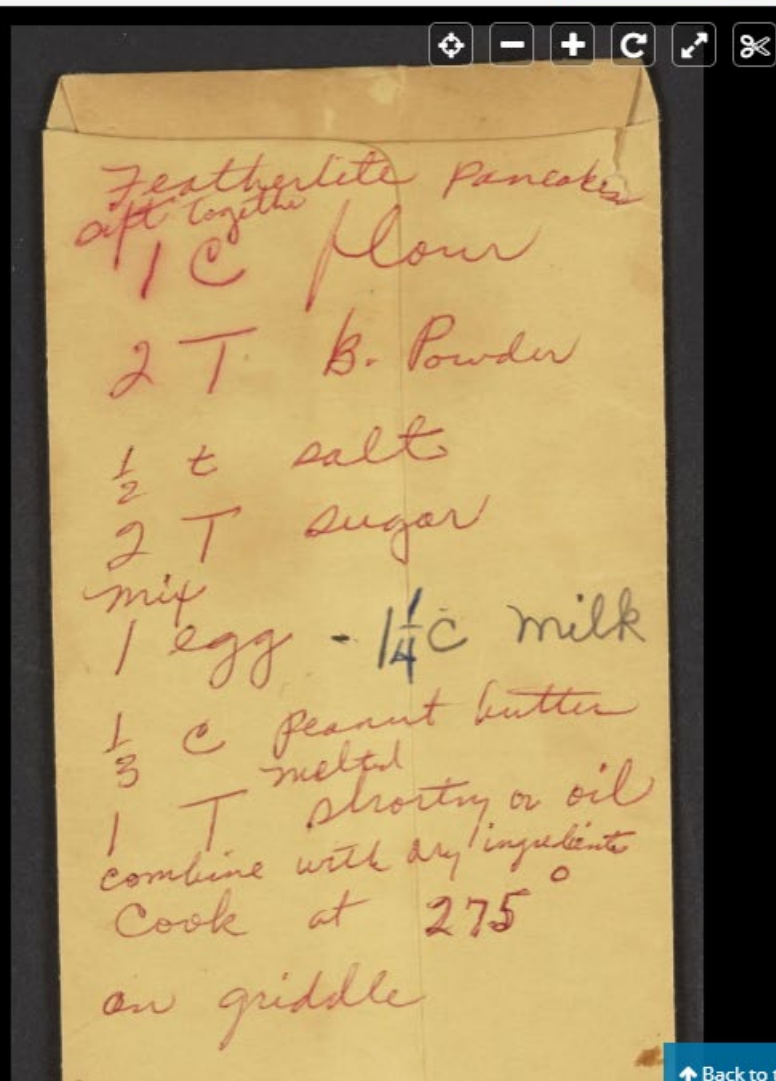 Featherlite Pancakes
sift together
1 C flour
2 T B. Powder
1/2 t salt
2 T sugar
mix
1 egg - 1 1/4 C milk
1/3 C peanut butter
melted
1 T shortng or oil
combine with dry ingredients
Cook at 275°
on griddle
Back to t